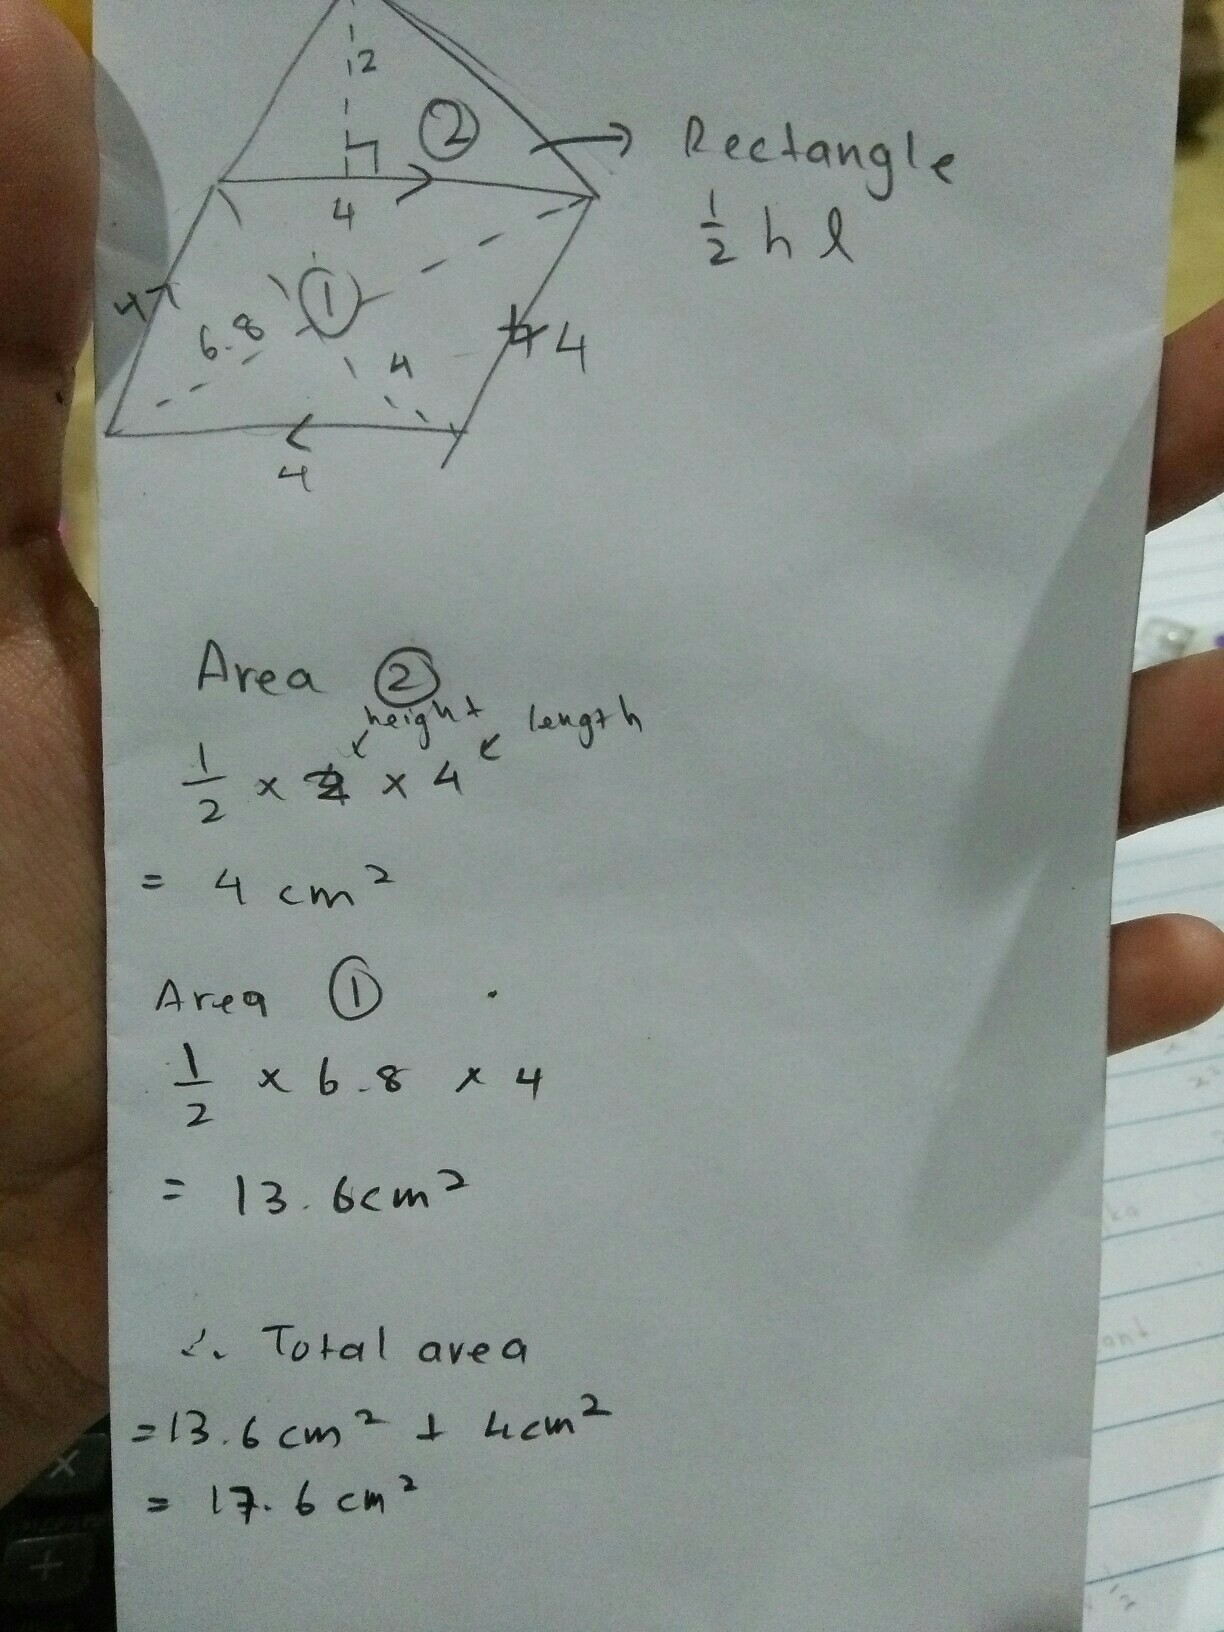 2
2
Rectangle
4
1/2 h l
1
4
6.8
4
4
4
Area 2
height length
1/2 × 2 × 4
= 4 cm²
Area 1
1/2 × 6.8 × 4
= 13.6cm²
∴ Total area
=13.6cm² + 4cm²
= 17.6cm²